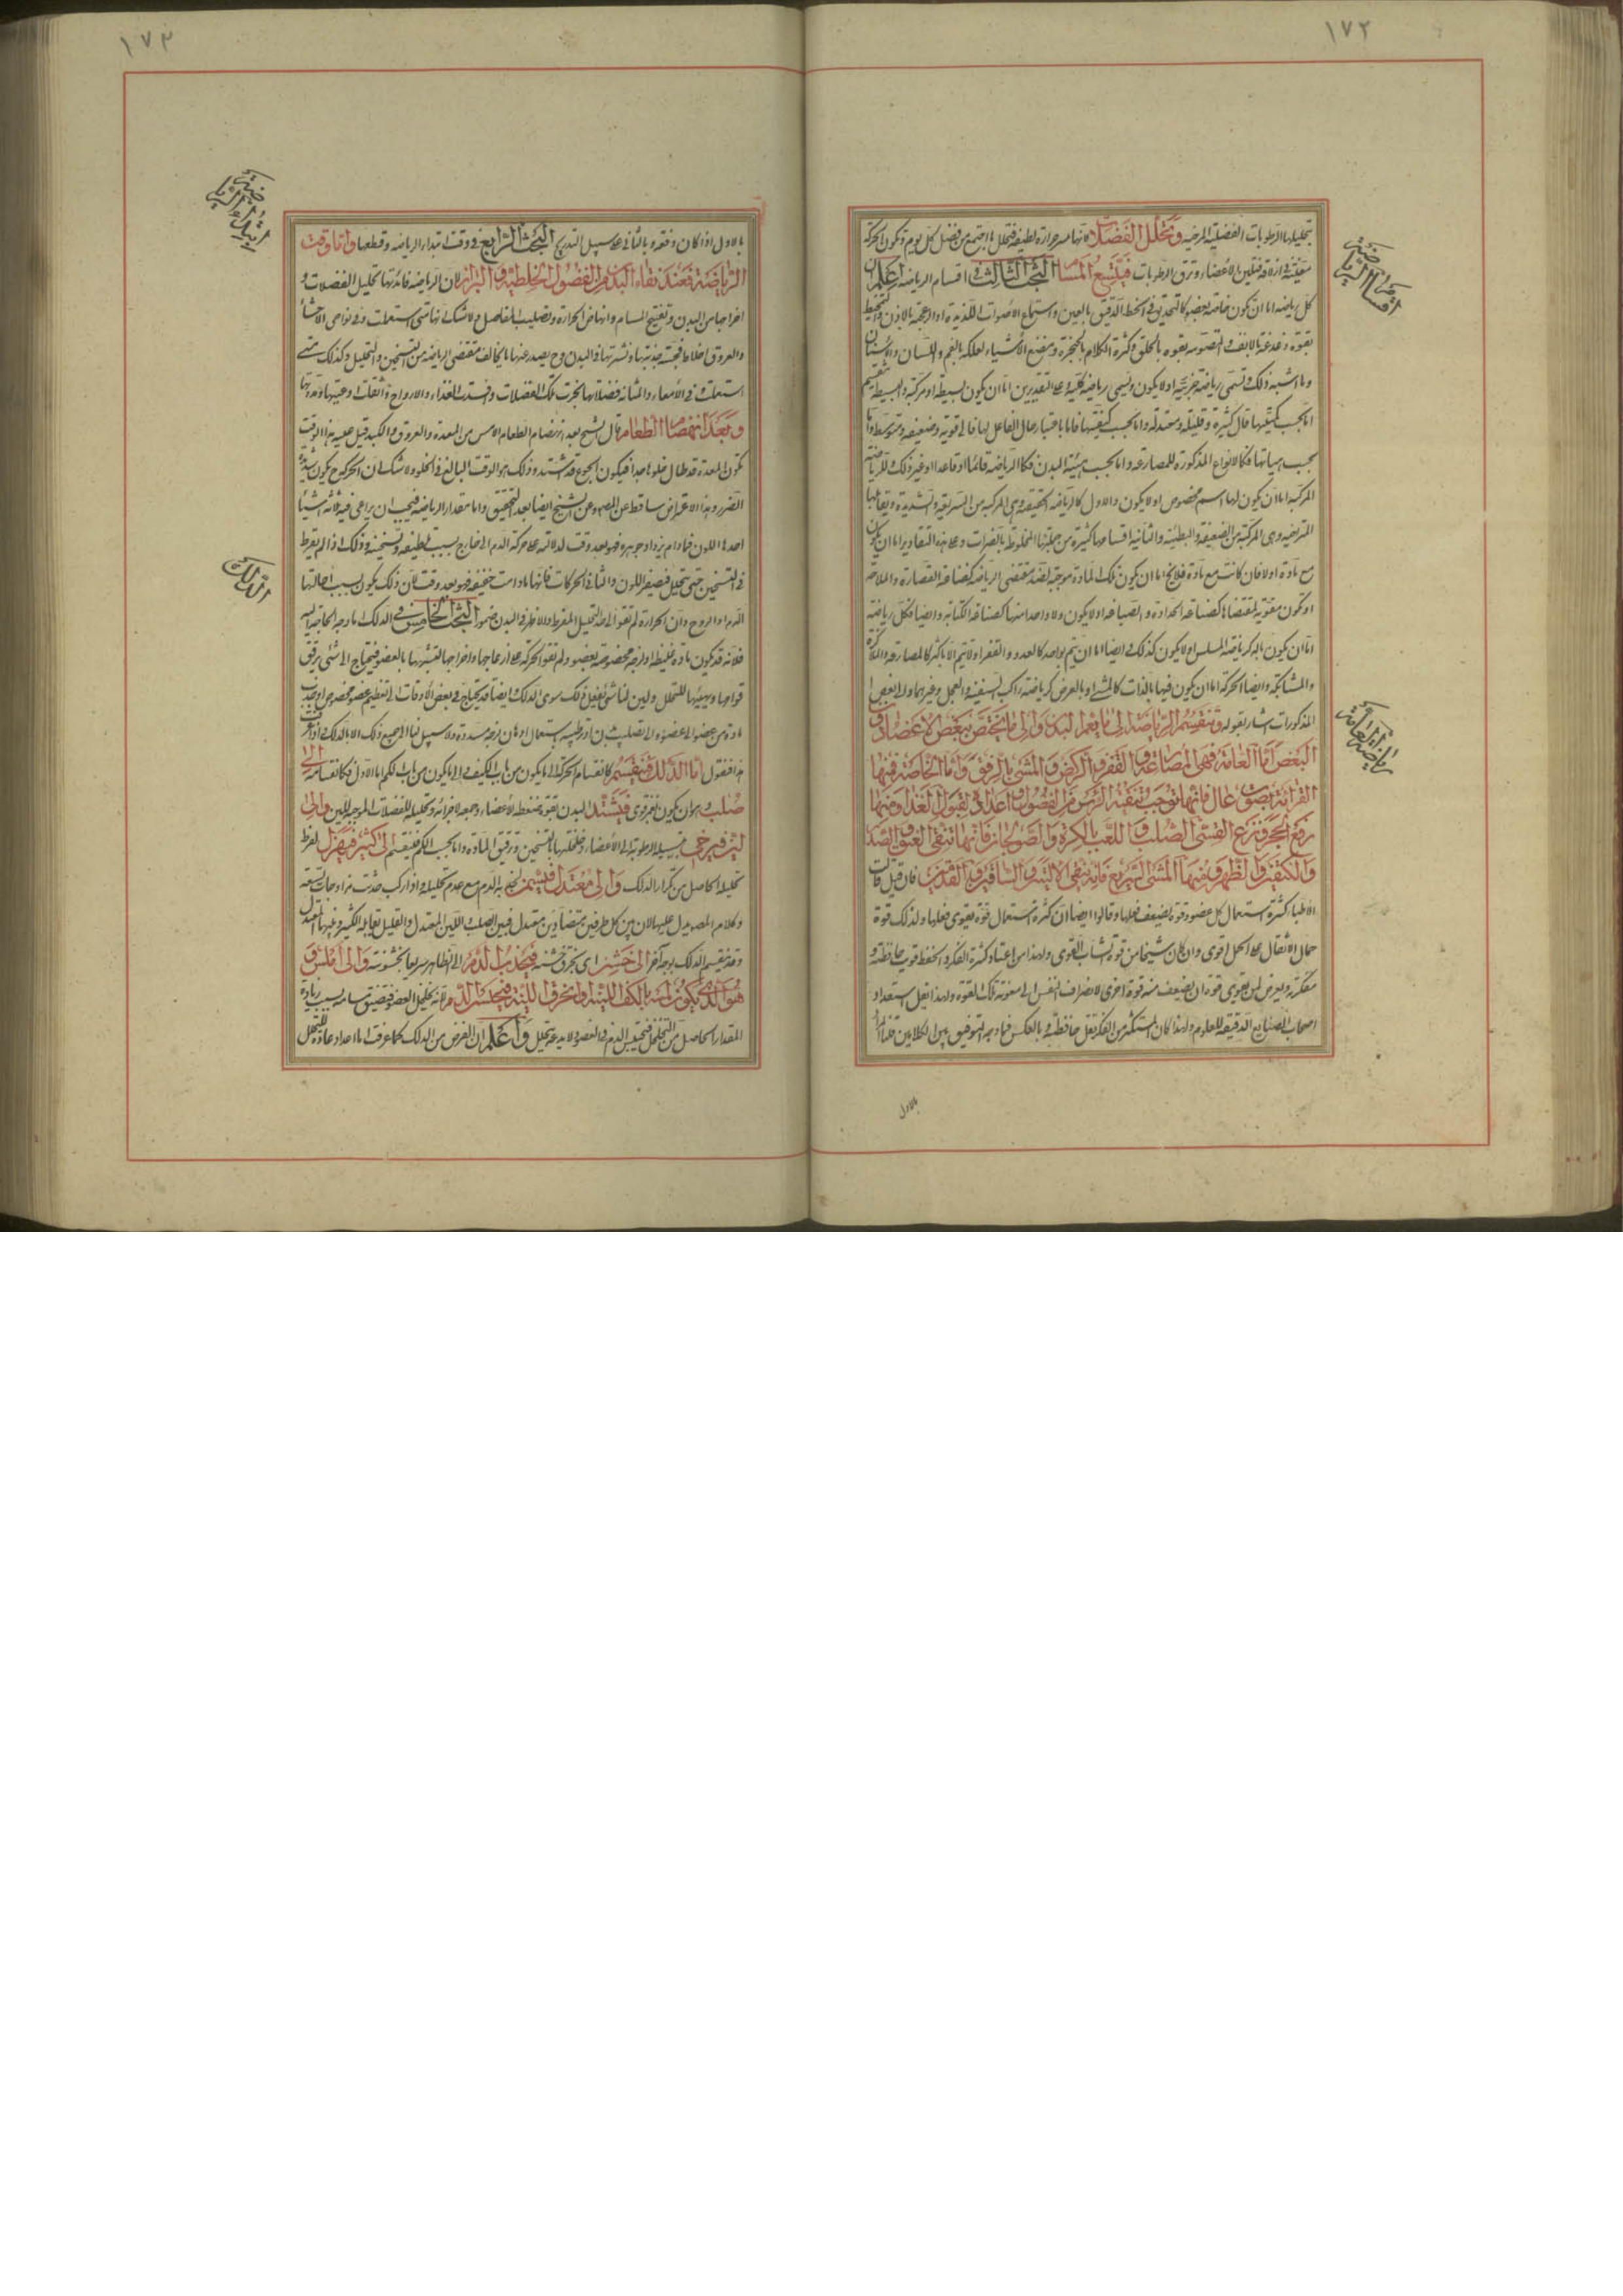 ١٧٢
بتحليلها الرطوبات الفضلية المرخية وتحلل الفضلات لانها تثير حرارة لطيفة فتحلل ما اجتمع من فضل كل يوم وتكون الحركة
معينة في ازلاقه فتلين الاعضاء وترق الرطوبات فيتسع المسام البحث الثالث في اقسام الرياضة اعلم ان
كل رياضة اما ان تكون خاصة بعضو كالتحديق في الخط الدقيق بالعين واستماع الاصوات اللذيذة او المزعجة بالاذن
بقوة بالانف والتصويت بقوة بالحلق وكثرة الكلام بالحنجرة ومضغ الاشياء بالفم واللسان والاسنان
وما اشبه ذلك وتسمى رياضة جزئية او لا يكون وتسمى رياضة كلية وعلى التقديرين اما ان يكون بسيطة او مركبة والبسيطة تنقسم
اما بحسب كميتها فالى كثيرة وقليلة ومعتدلة واما بحسب كيفيتها فاما باعتبار حال الفاعل لها فالى قوية وضعيفة ومتوسطة واما
بحسب هيأتها فكالانواع المذكورة للمصارعة واما بحسب هيئة البدن فكالرياضة قائما او قاعدا او غير ذلك
المركبة اما ان يكون لها اسم مخصوص او لا يكون والاول كالرياضة الحثيثة وهي المركبة من السريعة والشديدة ويقابلها
المتراخية وهي المركبة من الضعيفة والبطيئة والثانية اقسامها كثيرة من جملتها المخلوطة بالفترات وعلى هذه التقادير اما ان يكون
مع مادة او لا فان كانت مع مادة فلا يخ اما ان يكون تلك المادة موجبة لضد مقتضى الرياضة كصناعة القصارة والملاحة
او تكون مقوية لمقتضاها كصناعة الحدادة والصياغة او لا يكون ولا واحد منها كصناعة الكتابة وايضا فكل رياضة
اما ان يكون بآلة كرياضة او لا يكون كذلك وايضا اما ان يتم بواحد كالعدو والقفز او لا يتم الا باكثر كالمصارعة والملاكزة
والمشابكة وايضا الحركة اما ان يكون فيها بالذات كالمشي او بالعرض كرياضة راكب السفينة والعجل وغيرهما ولبعض
المذكورات اشار بقوله وتنقسم الرياضة الى ما يعم البدن والى ما يختص ببعض الاعضاء دون
البعض اما العامة فهي المصارعة والقفز والركض والمشي بالرفق واما الخاصة فمنها
القراءة بصوت عال فانها توجب تنقية الرأس من الفضول واعداده لقبول الغذا ومنها
رفع الحجر ونزع القسي الصلب واللعب بالكرة والصولجان فانها تنقي العنق والصدر
والكتفين والظهر ومنها المشي السريع فانه ينقي الاليتين والساقين والقدمين فان قيل قالت
الاطبا كثرة استعمال كل عضو وقوة تضعف فعلها وقالوا ايضا ان كثرة استعمال قوة يقوي فعلها ولذلك قوة
حمال الاثقال على الحمل اقوى وان كان شيخا من قوة الشاب القوي ولهذا من اعتاد كثرة الفكر والحفظ قويت حافظته و
مفكرته ويعرض لمن يقوي قوة ان يضعف منه قوة اخرى لانصراف النفس الى معونة تلك القوة ولهذا يقل استعداد
اصحاب الصنايع الدقيقة للعلوم ولهذا كان المستكثر من الفكر يقل حافظته وبالعكس فما وجه التوفيق بين الكلامين قلنا المراد
بالاول
اقسام الرياضة
رياضة العامة
١٧٣
بالاول اذا كان دفعة وبالثاني على سبيل التدريج البحث الرابع في وقت ابتداء الرياضة وقطعها واما وقت
الرياضة فعند نقاء البدن من الفضول الخلطية والبراز لان الرياضة فائدتها تحليل الفضلات و
اخراجها من البدن وتفتيح المسام وانهاض الحرارة وتصليب المفاصل ولا شك انها متى استعملت وفي نواحي الاحشاء
والعروق اخلاط فجة جذبتها ونشرتها في البدن وح يصدر عنها ما يخالف مقتضى الرياضة من التسخين والتحليل وكذلك متى
استعملت وفي الامعاء والمثانة فضلاتها بخرت تلك الفضلات وافسدت الغذاء والارواح واثقلت اوعيتها
وبعد انهضام الطعام قال الشيخ بعد انهضام الطعام الامس من المعدة والعروق والكبد قيل عليه هذا الوقت
تكون المعدة قد طال خلوها جدا فيكون الجوع قد اشتد وذلك هو الوقت البالغ في الخلو ولا شك ان الحركة ح يكون شديد
الضرر وهذا الاعتراض ساقط عن المصر وعن الشيخ ايضا بعد التحقيق واما مقدار الرياضة فيجب ان يراعى فيه ثلثة اشيا
احدها اللون فما دام يزداد جودة فهو بعد وقت لدلالته على حركة الدم الى خارج بسبب لطيفه وتسخينه وذلك اذا لم يفرط
في التسخين حتى يتحلل فيصفر اللون والثاني الحركات فانها ما دامت خفيفة فهو بعد وقت لان ذلك يكون بسبب احالتها
المواد الروح وان الحرارة لم تقو الى حد التحليل المفرط والا ظهر في البدن ضمور البحث الخامس في الدلك اما وجه الحاجة اليه
فلانه قد يكون مادة غليظة او لزجة مخصوصة بعضو ولم تقو الحركة على ازعاجها واخراجها لتشبثها بالعضو فيحتاج الى شئ يرقق
قوامها ويهيئها للتحلل وليس لنا شئ يفعل ذلك سوى الدلك وايضا قد يحتاج في بعض الاوقات الى تعظيم عضو مخصوص او جذب
مادة من عضو الى عضو او الى تصليب بدن او ترطيبه باستعمال ادهان لزجة مسددة ولا سبيل لنا الى جميع ذلك الا بالدلك واذا عرفت
هذا فنقول اما الدلك فينقسم كانقسام الحركة الى ما يكون من باب الكيف والى ما يكون من باب الكم اما الاول فكانقسامه الى
صلب وهو ان يكون بغمز قوي فيشتد البدن بقوة بضغط الاعضاء وجمعه لاجزائه وتحليله للفضلات الموجبة للين والى
لين فيرخي بتسييله الرطوبة الى الاعضاء وخلخلتها بالتسخين وترقيق المادة واما بحسب الكم فينقسم الى كثير فيهزل لفرط
تحليله الحاصل من تكرار الدلك والى معتدل فيسمن لجذبه الدم مع عدم تحليله واذا ركب حدثت مزاوجات تسعة
وكلام المصر يدل عليها لان بين كل طرفين متضادين معتدل فبين الصلب واللين المعتدل والقليل يقابله الكثير وبينهما المعتدل
وقد ينقسم الدلك بوجه آخر الى خشن اي بخرق خشنة فيجذب الدم الى الظاهر سريعا بخشونته والى املس و
هو الذي يكون اما بالكف اللينة او بخرق اللينة فيحبس الدم لانه يخلخل العضو فتضيق مسامه بسبب زيادة
المقدار الحاصل من التخلخل فيحتبس الدم في العضو ولا يدعه يتحلل واعلم ان الغرض من الدلك كما عرفت اما اعداد مادة للتحلل
ابتداء الرياضة
الدلك